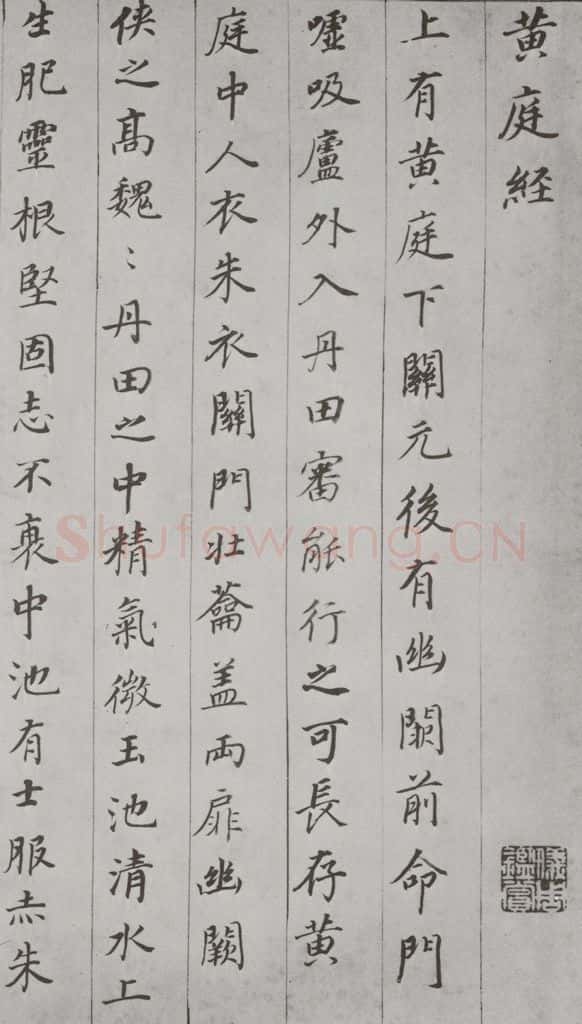 黄庭経
上有黄庭下關元後有幽闕前命門
噓吸廬外入丹田審能行之可長存黄
庭中人衣朱衣關門壯蘥盖兩扉幽闕
侠之髙魏〻丹田之中精氣微玉池清水上
生肥靈根堅固志不衰中池有士服赤朱
Shufawang.CN